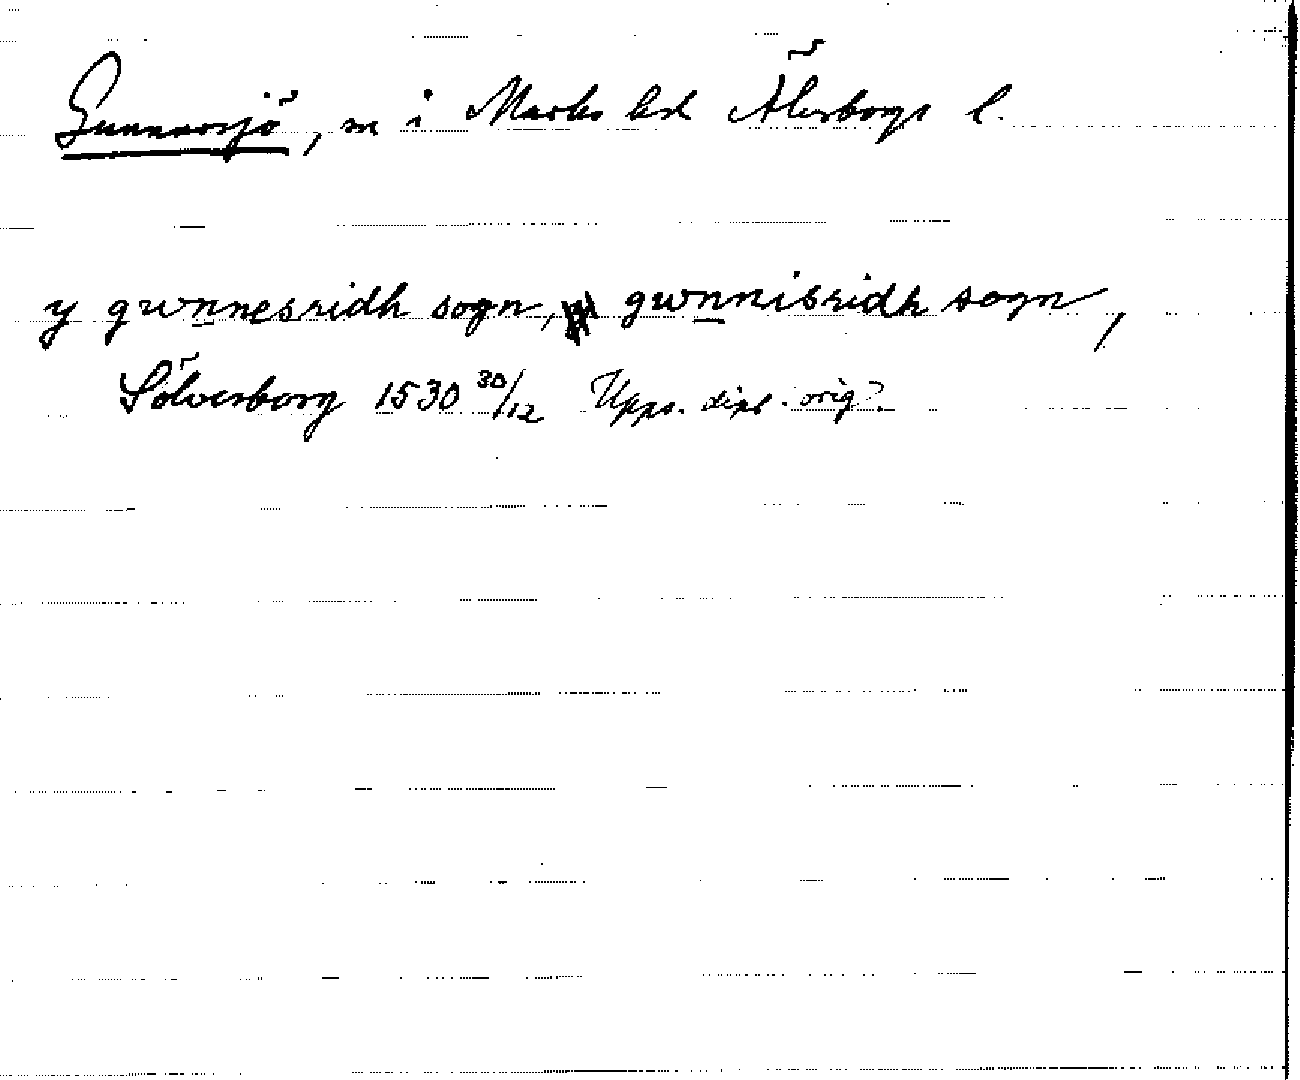 Gunnarsjö, sn i Marks hd Älvsborgs l.
y gwnnesridh sogn, gwnnisridh sogn,
Sölvesborg 1530 30/12 Upps. dipl. orig?.